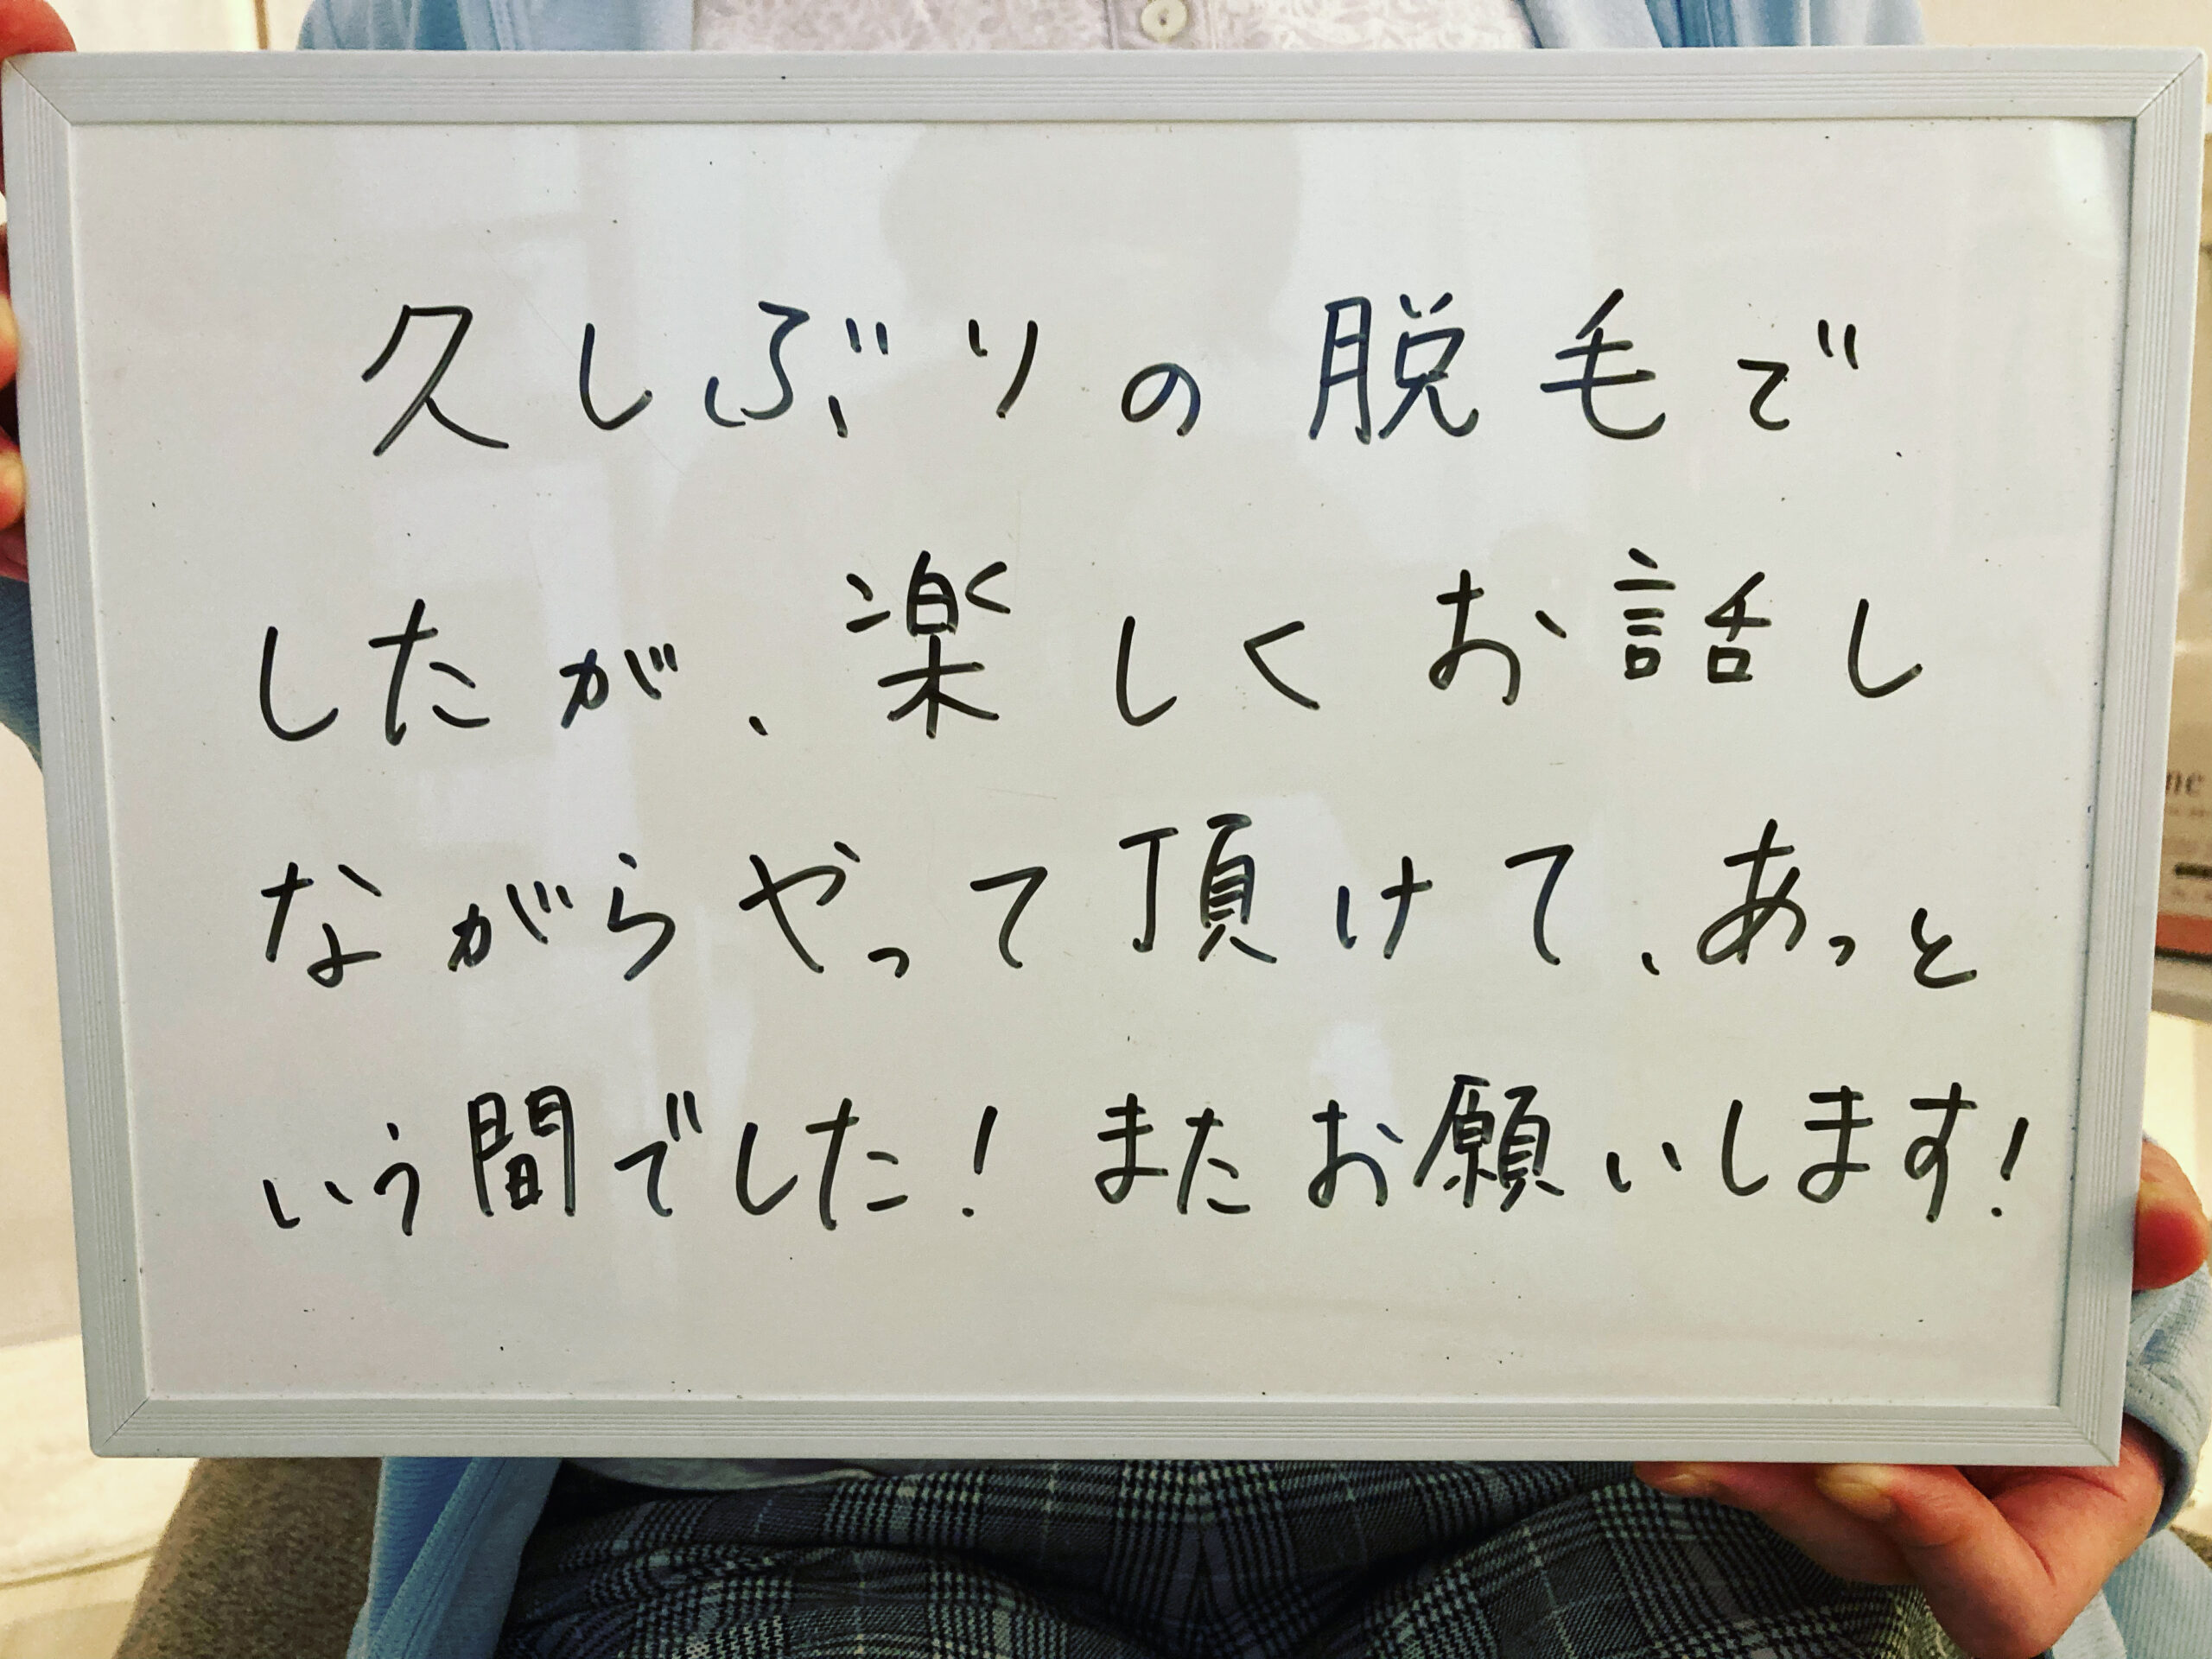 久しぶりの脱毛で
したが、楽しくお話し
ながらやって頂けて、あっと
いう間でした！またお願いします！